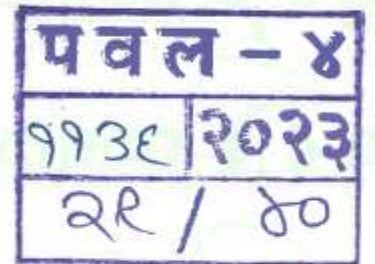 पवल - ४
११३६ २०२३
२९ / ४०